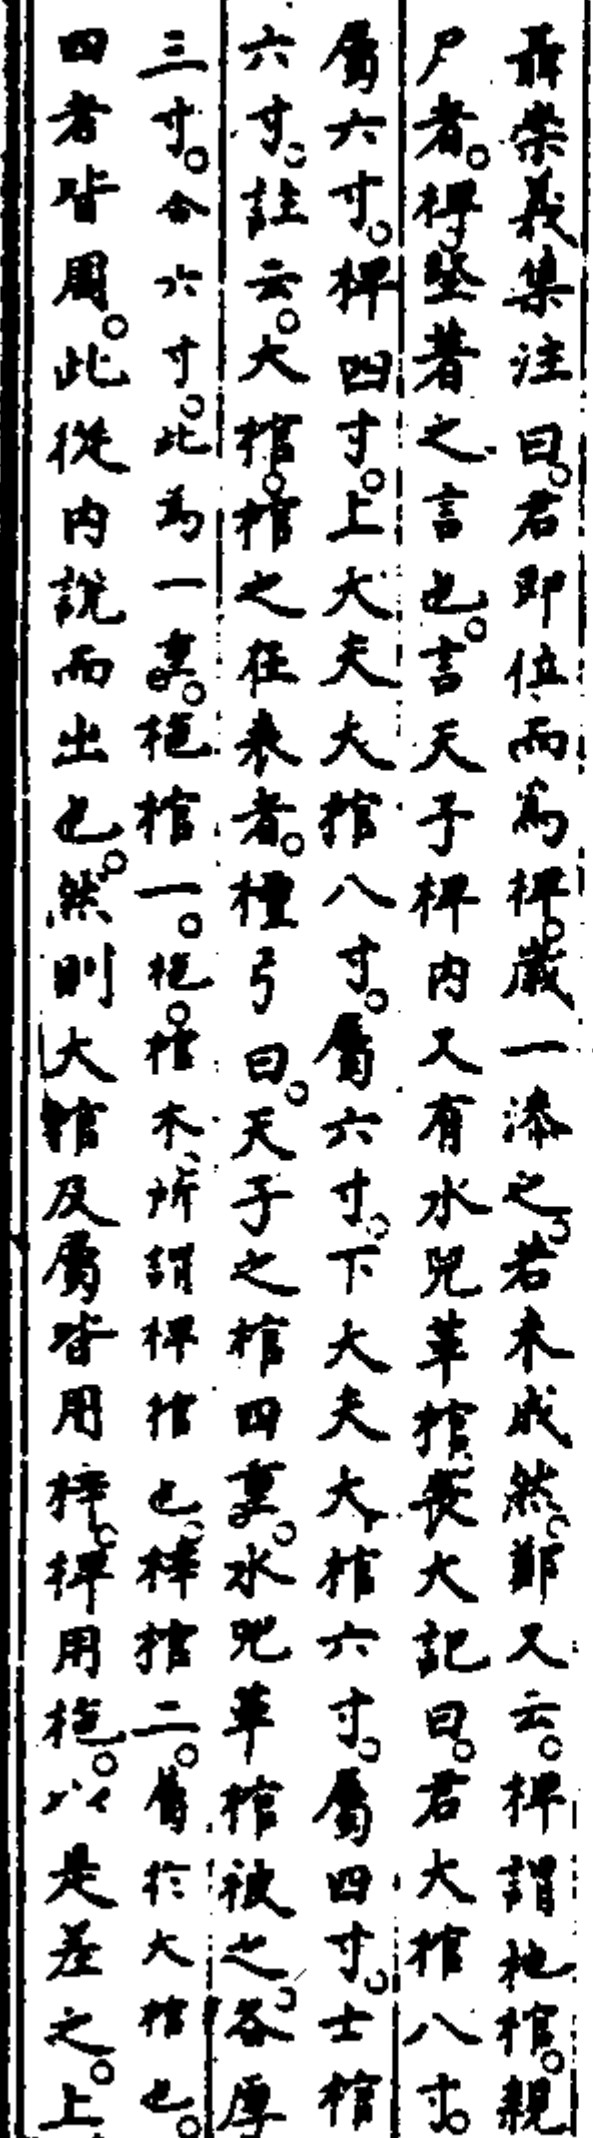 聶崇義集注曰。君即位而為椑。歲一漆之。若未成然。鄭又云。椑謂杝棺。親
尸者。椑堅著之言也。言天子椑内又有水兕革棺。喪大記曰。君大棺八寸。
屬六寸。椑四寸。上大夫大棺八寸。屬六寸。下大夫大棺六寸。屬四寸。士棺
六寸。註云。大棺。棺之在表者。檀弓曰。天子之棺四重。水兕革棺被之。各厚
三寸。合六寸。此為一重。杝棺一。杝。棺木、所謂椑棺也。梓棺二。屬於大棺也。
四者皆周。此從内說而出也。然則大棺及屬皆用梓。椑用杝。以是差之。上